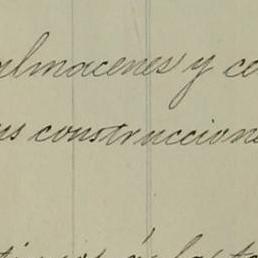 almacenes y co
us construccione